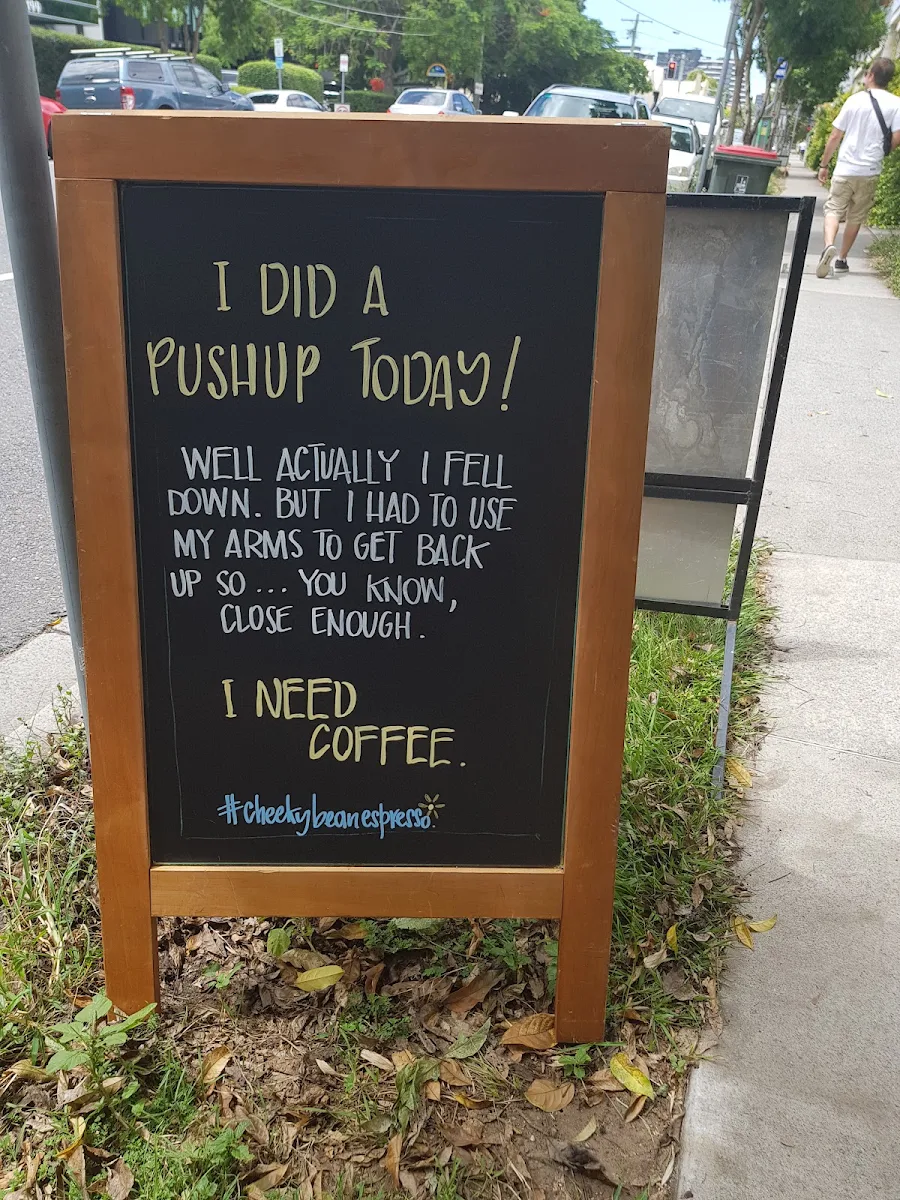 I DID A
PUSHUP TODAY!
WELL ACTUALLY I FELL
DOWN. BUT I HAD TO USE
MY ARMS TO GET BACK
UP SO ... YOU KNOW,
CLOSE ENOUGH.
I NEED
COFFEE.
#cheekybeanespresso